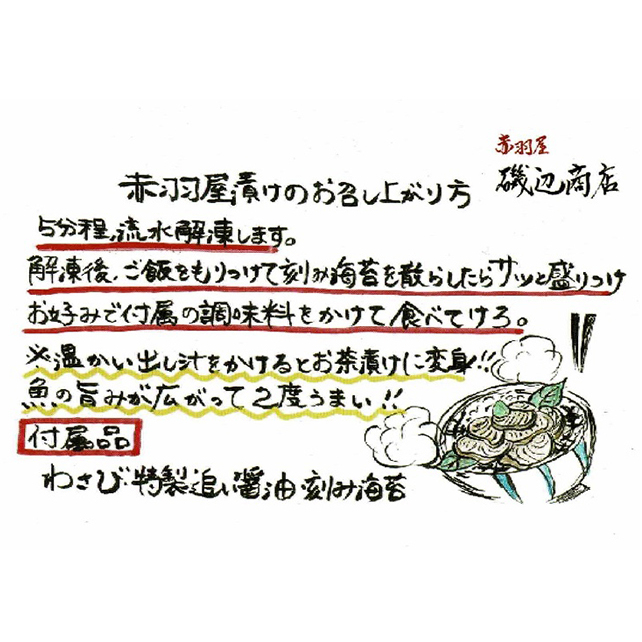 赤羽屋
磯辺商店
赤羽屋漬けのお召し上がり方
5分程、流水解凍します。
解凍後、ご飯をもりつけて刻み海苔を散らしたらサッと盛りつけ
お好みで付属の調味料をかけて食べてけろ。
※温かい出し汁をかけるとお茶漬けに変身!!
魚の旨みが広がって2度うまい!!
付属品
わさび・特製追い醤油・刻み海苔